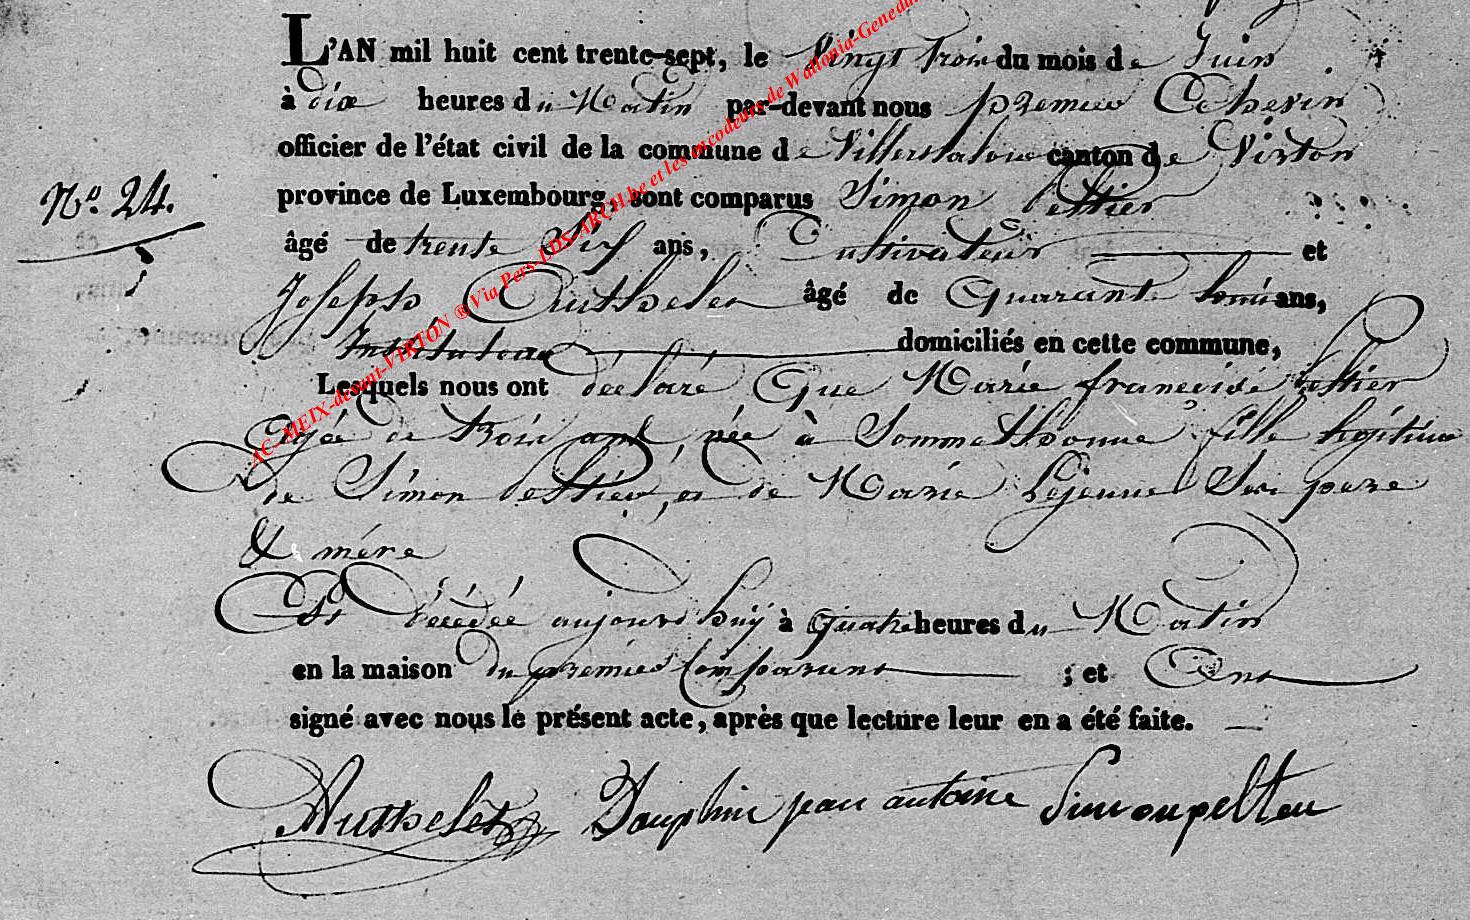 L'AN mil huit cent trente-sept, le Vingt trois du mois de Juin
à dix heures du Matin par-devant nous premier Echevin
officier de l'état civil de la commune de Villers la loue canton de Virton
N.o 24. province de Luxembourg, sont comparus Simon peltier
âgé de trente Six ans, Cultivateur et
Joseph Authelet âgé de Quarante ans,
Instituteur domiciliés en cette commune,
Lesquels nous ont déclaré Que Marie françoise peltier
Agée de trois ans, née à Sommethonne fille légitime
de Simon peltier, et de Marie Lejeune Ses pere
& mére
Est décédée aujourd huÿ à quatre heures du Matin
en la maison du premier Comparant ; et Ont
signé avec nous le présent acte, après que lecture leur en a été faite.
Authelet Dauphin jean antoine Simon peltier
AC-MEIX-devant-VIRTON ® Via Pers-LDS-ARCH.be et les encodeurs de Wallonia-Geneduc